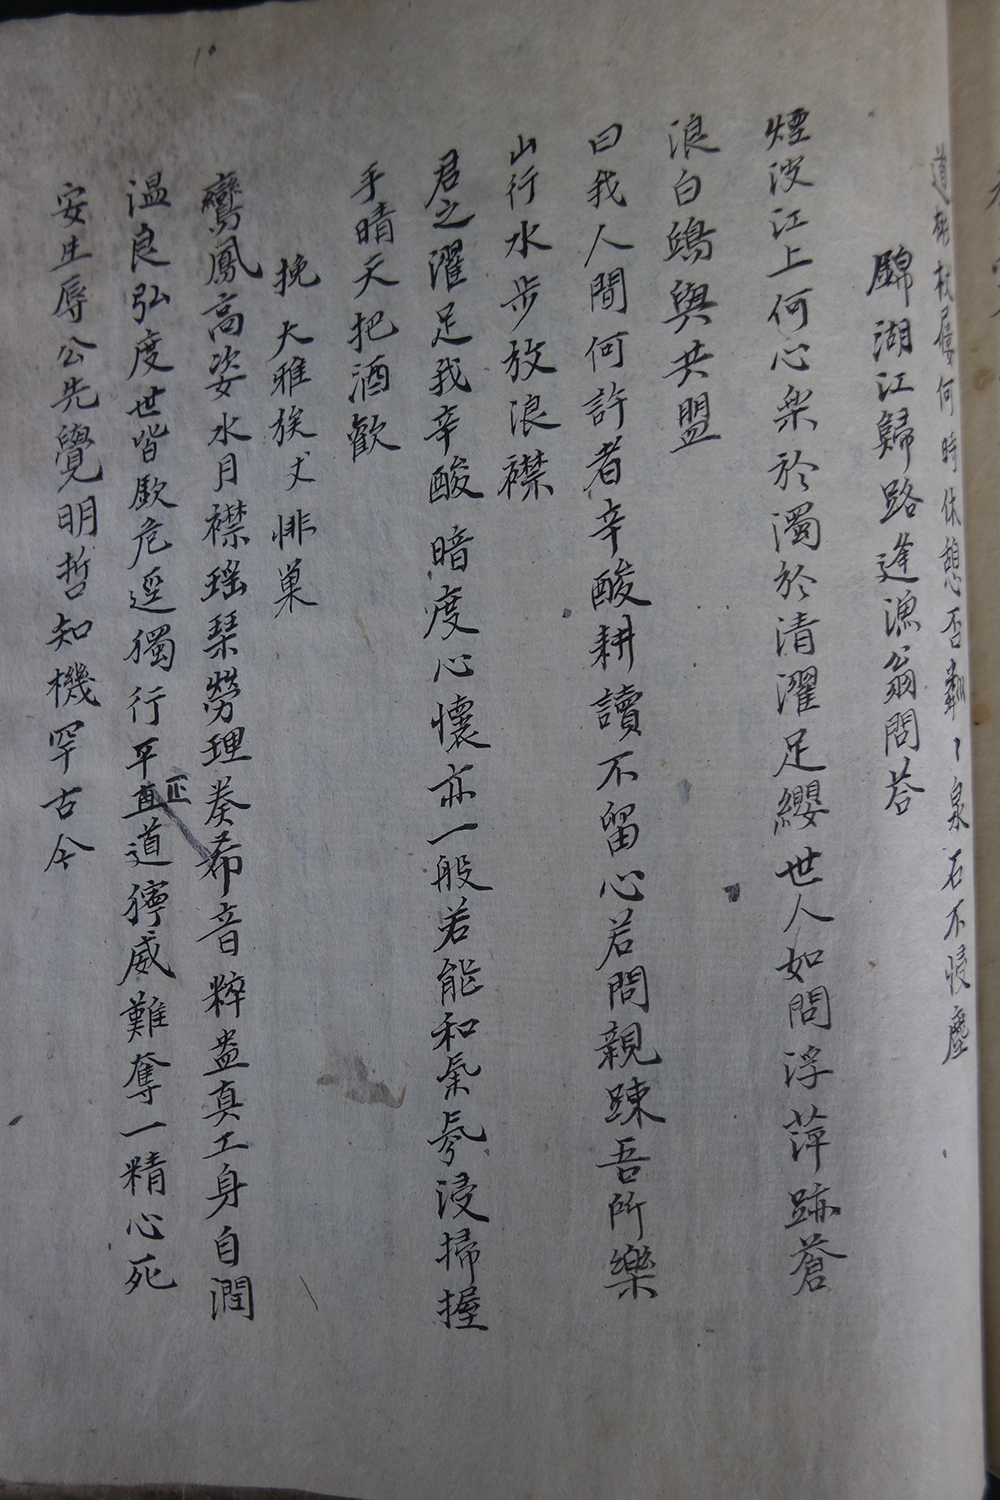 道杖屨何時休憩否 泉石不侵塵
錦湖江歸路逢漁翁問答
煙波江上何心樂於濁於清濯足纓世人如問浮萍跡蒼
浪白鷗與共盟
曰我人間何許者辛酸耕讀不留心若問親踈吾所樂
山行水步放浪襟
君之濯足我辛酸暗度心懷亦一般若能和氣氛浸掃握
手晴天把酒歡
挽大雅族丈悱巢
鸞鳳高姿水月襟瑤琹勞理奏希音粹盎真工身自潤
温良弘度世皆歐危逕獨行平直正道獰威難奪一精心死
安生辱公先覺明哲知機罕古今